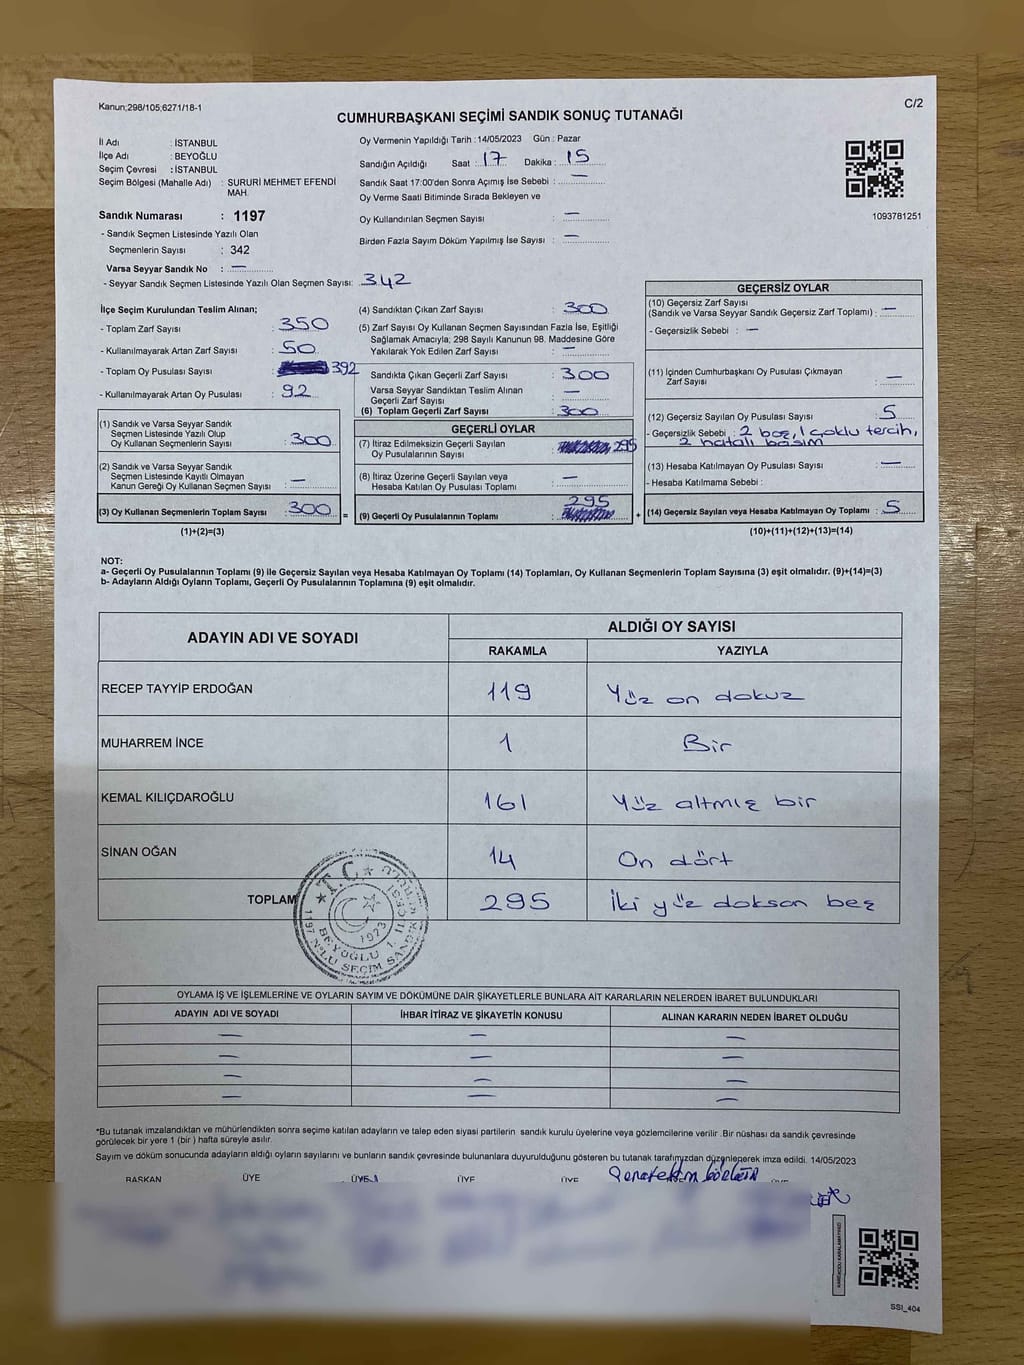 Kanun;298/105;6271/18-1
C/2
CUMHURBAŞKANI SEÇİMİ SANDIK SONUÇ TUTANAĞI
İl Adı : İSTANBUL
İlçe Adı : BEYOĞLU
Seçim Çevresi : İSTANBUL
Seçim Bölgesi (Mahalle Adı) : SURURİ MEHMET EFENDİ
MAH.
Sandık Numarası : 1197
- Sandık Seçmen Listesinde Yazılı Olan
Seçmenlerin Sayısı : 342
Varsa Seyyar Sandık No : —
- Seyyar Sandık Seçmen Listesinde Yazılı Olan Seçmen Sayısı: 342
Oy Vermenin Yapıldığı Tarih : 14/05/2023 Gün : Pazar
Sandığın Açıldığı Saat : 17 Dakika : 15
Sandık Saat 17:00'den Sonra Açımış İse Sebebi : —
Oy Verme Saati Bitiminde Sırada Bekleyen ve
Oy Kullandırılan Seçmen Sayısı : —
Birden Fazla Sayım Döküm Yapılmış İse Sayısı : —
1093781251
İlçe Seçim Kurulundan Teslim Alınan;
- Toplam Zarf Sayısı : 350
- Kullanılmayarak Artan Zarf Sayısı : 50
- Toplam Oy Pusulası Sayısı : 392
- Kullanılmayarak Artan Oy Pusulası : 92
(1) Sandık ve Varsa Seyyar Sandık
Seçmen Listesinde Yazılı Olup
Oy Kullanan Seçmenlerin Sayısı : 300
(2) Sandık ve Varsa Seyyar Sandık
Seçmen Listesinde Kayıtlı Olmayan
Kanun Gereği Oy Kullanan Seçmen Sayısı : —
(3) Oy Kullanan Seçmenlerin Toplam Sayısı : 300 =
(1)+(2)=(3)
(4) Sandıktan Çıkan Zarf Sayısı : 300
(5) Zarf Sayısı Oy Kullanan Seçmen Sayısından Fazla İse, Eşitliği
Sağlamak Amacıyla; 298 Sayılı Kanunun 98. Maddesine Göre
Yakılarak Yok Edilen Zarf Sayısı : —
Sandıkta Çıkan Geçerli Zarf Sayısı : 300
Varsa Seyyar Sandıktan Teslim Alınan
Geçerli Zarf Sayısı : —
(6) Toplam Geçerli Zarf Sayısı : 300
GEÇERLİ OYLAR
(7) İtiraz Edilmeksizin Geçerli Sayılan
Oy Pusulalarının Sayısı : 295
(8) İtiraz Üzerine Geçerli Sayılan veya
Hesaba Katılan Oy Pusulası Toplamı : —
(9) Geçerli Oy Pusulalarının Toplamı : 295 +
GEÇERSİZ OYLAR
(10) Geçersiz Zarf Sayısı
(Sandık ve Varsa Seyyar Sandık Geçersiz Zarf Toplamı) : —
- Geçersizlik Sebebi : —
(11) İçinden Cumhurbaşkanı Oy Pusulası Çıkmayan
Zarf Sayısı : —
(12) Geçersiz Sayılan Oy Pusulası Sayısı : 5
- Geçersizlik Sebebi : 2 boş, 1 çoklu tercih,
2 hatalı basım
(13) Hesaba Katılmayan Oy Pusulası Sayısı : —
- Hesaba Katılmama Sebebi :
(14) Geçersiz Sayılan veya Hesaba Katılmayan Oy Toplamı : 5
(10)+(11)+(12)+(13)=(14)
NOT:
a- Geçerli Oy Pusulalarının Toplamı (9) ile Geçersiz Sayılan veya Hesaba Katılmayan Oy Toplamı (14) Toplamları, Oy Kullanan Seçmenlerin Toplam Sayısına (3) eşit olmalıdır. (9)+(14)=(3)
b- Adayların Aldığı Oyların Toplamı, Geçerli Oy Pusulalarının Toplamına (9) eşit olmalıdır.
ADAYIN ADI VE SOYADI
ALDIĞI OY SAYISI
RAKAMLA YAZIYLA
RECEP TAYYİP ERDOĞAN 119 Yüz on dokuz
MUHARREM İNCE 1 Bir
KEMAL KILIÇDAROĞLU 161 Yüz altmış bir
SİNAN OĞAN 14 On dört
TOPLAM 295 İki yüz doksan beş
T.C.
1923
BEYOĞLU 1. İLÇESİ
1197 NOLU SEÇİM SANDIK KURULU
OYLAMA İŞ VE İŞLEMLERİNE VE OYLARIN SAYIM VE DÖKÜMÜNE DAİR ŞİKAYETLERLE BUNLARA AİT KARARLARIN NELERDEN İBARET BULUNDUKLARI
ADAYIN ADI VE SOYADI İHBAR İTİRAZ VE ŞİKAYETİN KONUSU ALINAN KARARIN NEDEN İBARET OLDUĞU
— — —
— — —
— — —
— — —
*Bu tutanak imzalandıktan ve mühürlendikten sonra seçime katılan adayların ve talep eden siyasi partilerin sandık kurulu üyelerine veya gözlemcilerine verilir .Bir nüshası da sandık çevresinde
görülecek bir yere 1 (bir ) hafta süreyle asılır.
Sayım ve döküm sonucunda adayların aldığı oyların sayılarını ve bunların sandık çevresinde bulunanlara duyurulduğunu gösteren bu tutanak tarafımızdan düzenlenerek imza edildi. 14/05/2023
BAŞKAN ÜYE ÜYE ÜYE ÜYE ÜYE
KAREKODU KARALAMAYINIZ!
SSI_404